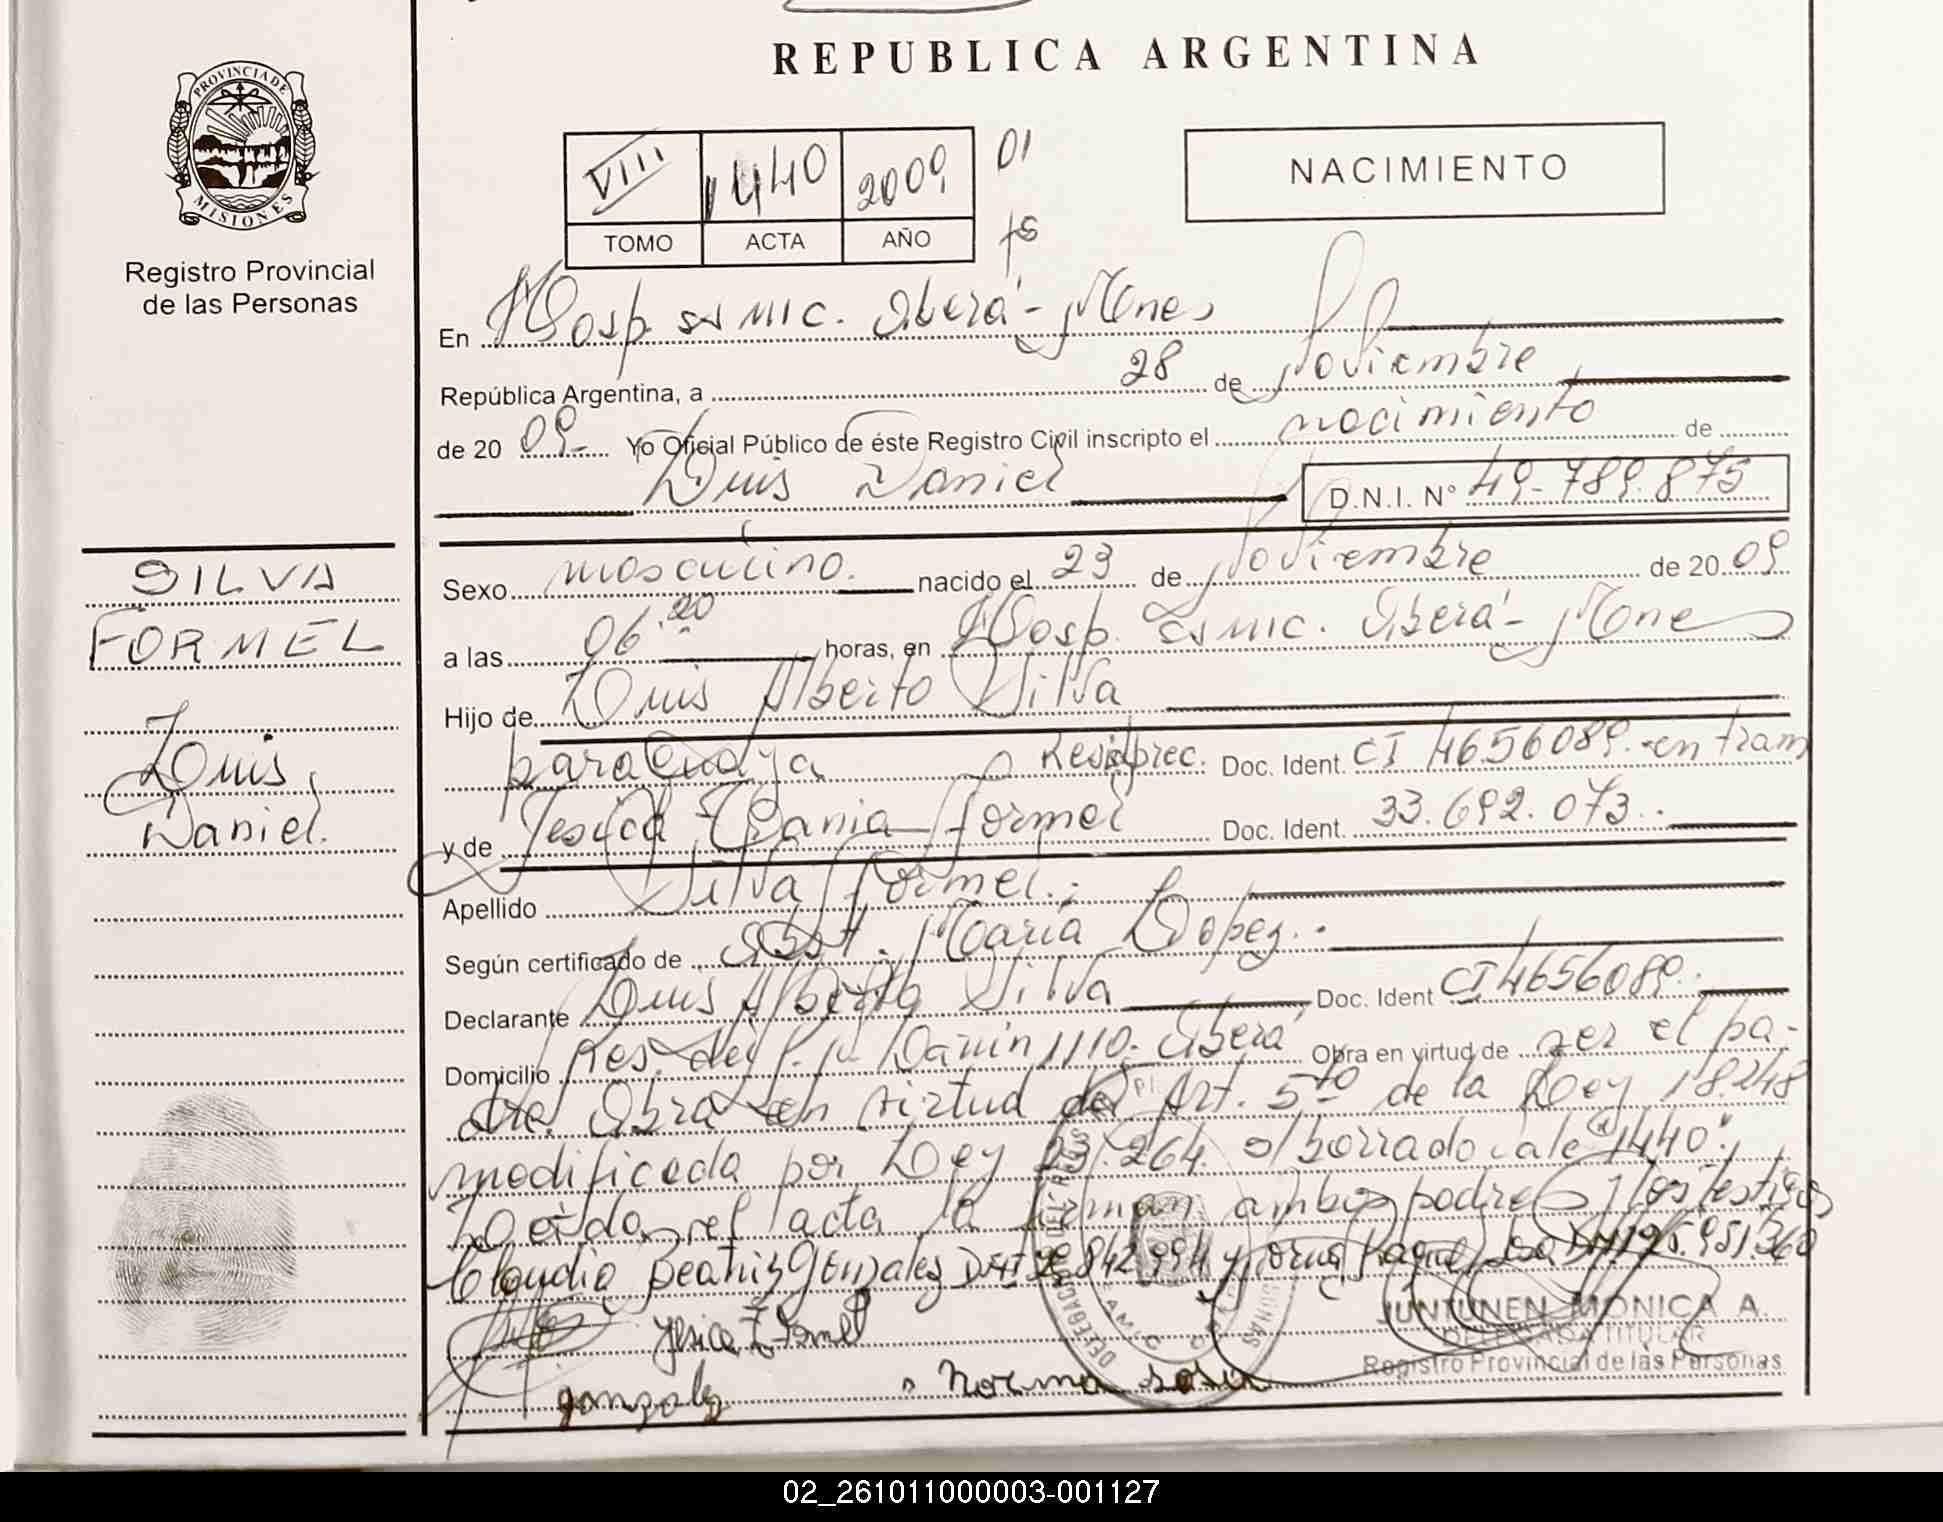 REPUBLICA ARGENTINA
PROVINCIA DE
MISIONES
Registro Provincial
de las Personas
VIII 1440 2009 01
TOMO ACTA AÑO
NACIMIENTO
En Hosp. SAMIC. Oberá - Mnes
República Argentina, a 28 de Noviembre
de 20 09.- Yo Oficial Público de éste Registro Civil inscripto el nacimiento de
Luis Daniel D.N.I. N° 49.789.875
SILVA
FORMEL
Luis
Daniel.
Sexo masculino. nacido el 23 de Noviembre de 20 09
a las 06.20 horas, en Hosp. SAMIC. Oberá - Mnes
Hijo de Luis Alberto Silva
paraguaya Resid. prec. Doc. Ident. CI 4656089.- en tram
y de Jesica Tania Formel Doc. Ident. 33.692.073..
Apellido Silva Formel.-
Según certificado de Obst. María Lopez..
Declarante Luis Alberto Silva Doc. Ident CI 4656089.
Domicilio Res. del Darwin 1110. Oberá Obra en virtud de ser el pa-
dre. Obra en virtud del Art. 5to de la Ley 18.248
modificada por Ley 23.264. s/borrado vale "1440".
Leída el acta la firman ambos padres y los testigos
Claudia Beatriz Gonzalez DNI 842.994 y Norma Raquel Sosa DNI 951.360
Jesica T Formel
JUNTUNEN MONICA A.
DELEGADA TITULAR
Registro Provincial de las Personas
gonzalez Norma Sosa
02_261011000003-001127